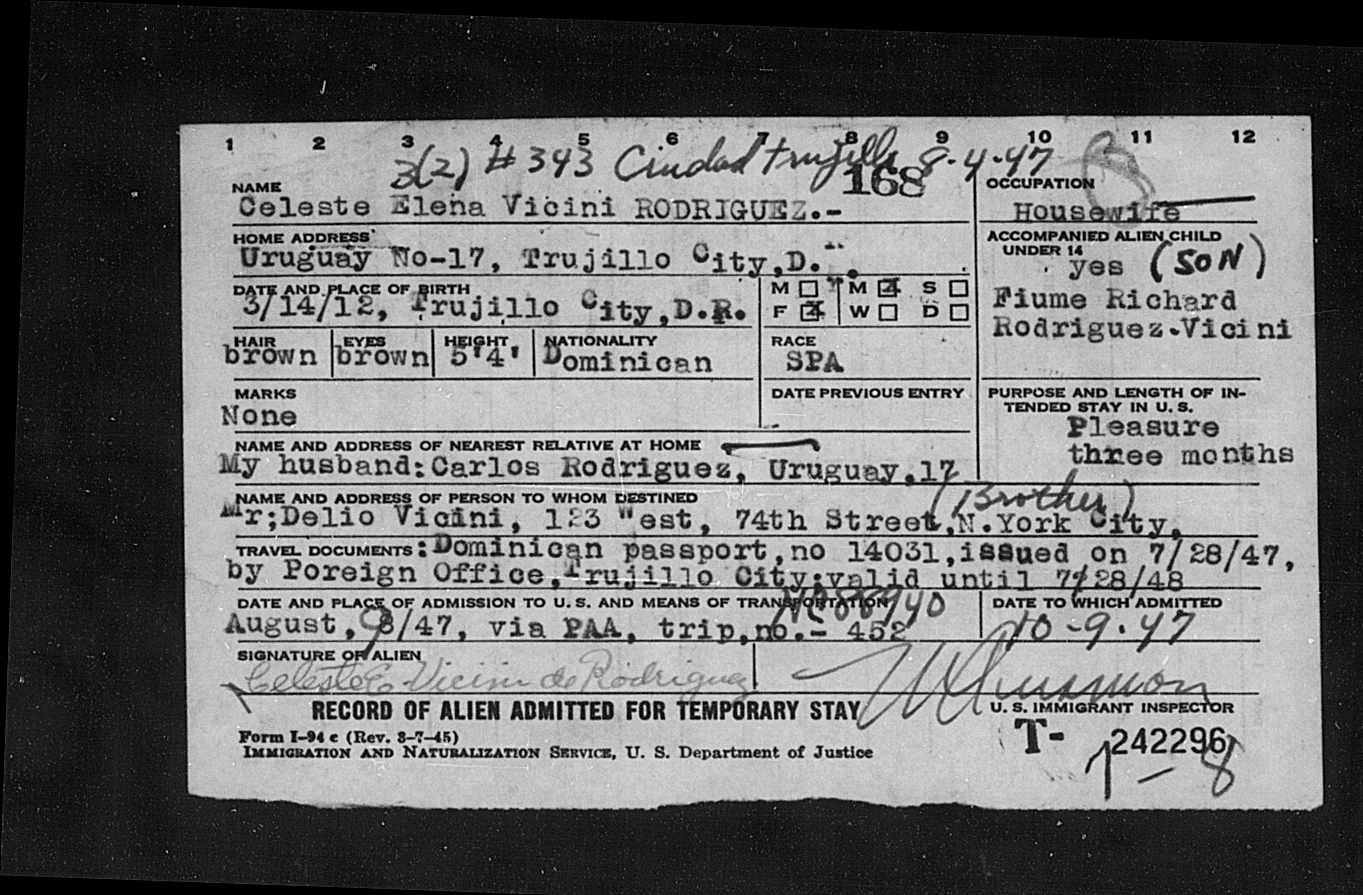 1 2 3 4 5 6 7 8 9 10 11 12
3(2) # 343 Ciudad Trujillo 8-4-47
168
NAME
Celeste Elena Vicini RODRIGUEZ.-
OCCUPATION
Housewife
HOME ADDRESS
Uruguay No-17, Trujillo City,D.
ACCOMPANIED ALIEN CHILD
UNDER 14
yes (SON)
Fiume Richard
Rodriguez-Vicini
DATE AND PLACE OF BIRTH
3/14/12, Trujillo City,D.R.
M M S
F W D
HAIR EYES HEIGHT NATIONALITY
brown brown 5'4' Dominican
RACE
SPA
MARKS
None
DATE PREVIOUS ENTRY
PURPOSE AND LENGTH OF IN-
TENDED STAY IN U. S.
Pleasure
three months
NAME AND ADDRESS OF NEAREST RELATIVE AT HOME
My husband:Carlos Rodriguez, Uruguay,17
NAME AND ADDRESS OF PERSON TO WHOM DESTINED
(Brother)
Mr;Delio Vicini, 123 West, 74th Street,N.York City,
TRAVEL DOCUMENTS:Dominican passport,no 14031,issued on 7/28/47,
by Foreign Office,Trujillo City;valid until 7/28/48
DATE AND PLACE OF ADMISSION TO U. S. AND MEANS OF TRANSPORTATION
NC88940
August, 9/47, via PAA, trip,no.- 452
DATE TO WHICH ADMITTED
10-9-47
SIGNATURE OF ALIEN
Celeste E. Vicini de Rodriguez
RECORD OF ALIEN ADMITTED FOR TEMPORARY STAY
U. S. IMMIGRANT INSPECTOR
Form I-94 c (Rev. 8-7-45)
IMMIGRATION AND NATURALIZATION SERVICE, U. S. Department of Justice
T- 242296
1-8